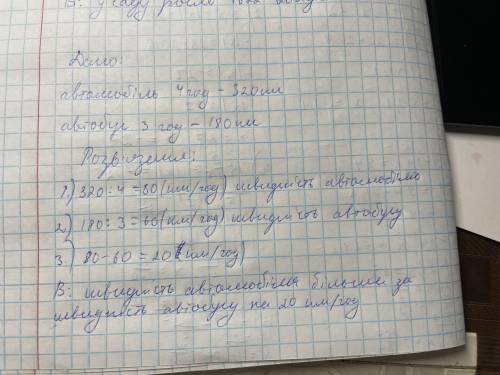 В: у саду росло
Дано:
автомобіль 4 год - 320 км
автобус 3 год - 180 км
Розв'язання:
1) 320 : 4 = 80 (км/год) швидкість автомобілю
2) 180 : 3 = 60 (км/год) швидкість автобусу
3) 80 - 60 = 20 (км/год)
В: швидкість автомобіля більша за
швидкість автобусу на 20 км/год